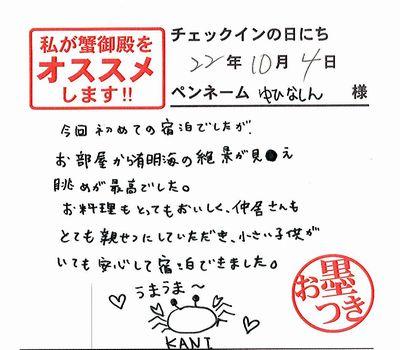 私が蟹御殿を
オススメ
します!!
チェックインの日にち
22年10月4日
ペンネーム ゆひなしん 様
今回初めての宿泊でしたが、
お部屋から有明海の絶景が見え
眺めが最高でした。
お料理もとってもおいしく、仲居さんも
とても親せつにしていただき、小さい子供が
いても安心して宿泊できました。
うまうま～
KANI
お墨
つき